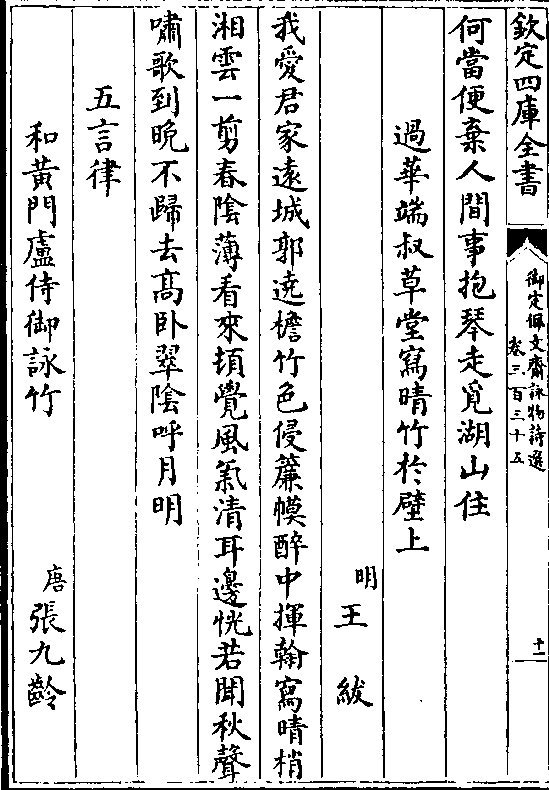 欽定四庫全書
御定佩文齋詠物詩選
卷三百三十五
十一
何當便棄人間事抱琴走覓湖山住
過華端叔草堂寫晴竹於壁上
明王紱
我愛君家遠城郭遶檐竹色侵簾幙醉中揮翰寫晴梢
湘雲一剪春陰薄看來頓覺風氣清耳邊恍若聞秋聲
嘯歌到晚不歸去高卧翠陰呼月明
五言律
和黃門盧侍御詠竹
唐張九齡